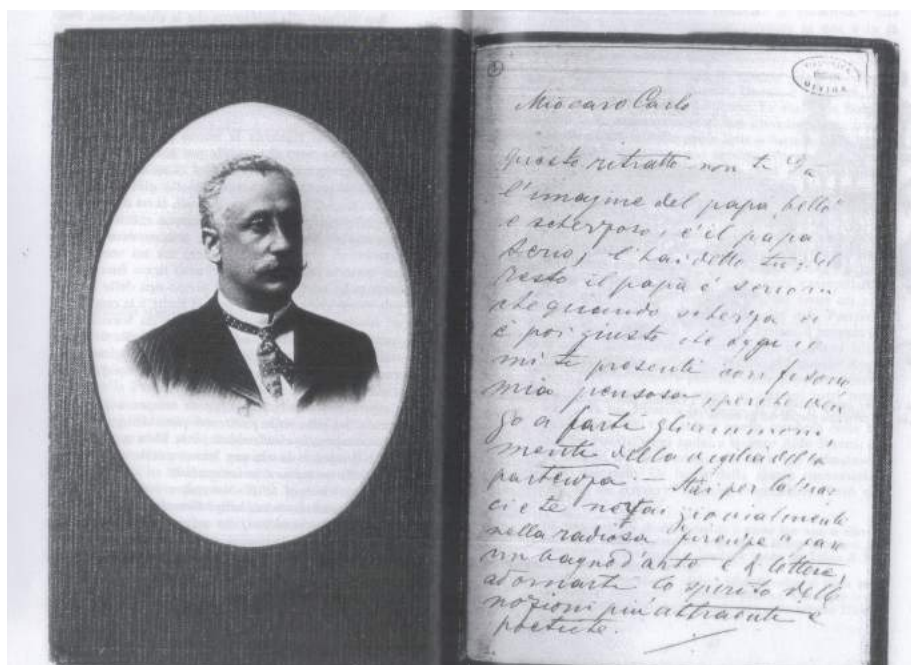 Mio caro Carlo
Questo ritratto non ti dà
l'imagine del papa "bello"
e scherzoso, è il papa
serio; l'hai detto tu; del
resto il papà è serio an
che quando scherza
è poi giusto che oggi io
mi ti presenti con fisono
mia pensosa, perchè ven
go a farti gli ammoni
menti della vigilia della
partenza. — Stai per lasciar
ci e te ne vai giovialmente
nella radiosa Firenze a fare
un bagno d'arte e di lettere,
adornarti lo spirito delle
nozioni più attraenti e
poetiche.